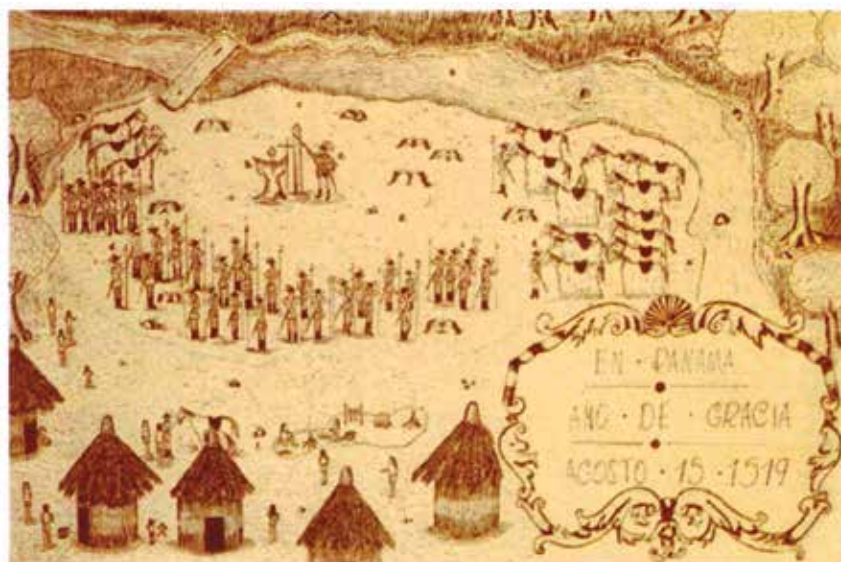 EN · PANAMA
AÑO · DE · GRACIA
AGOSTO · 15 · 1519